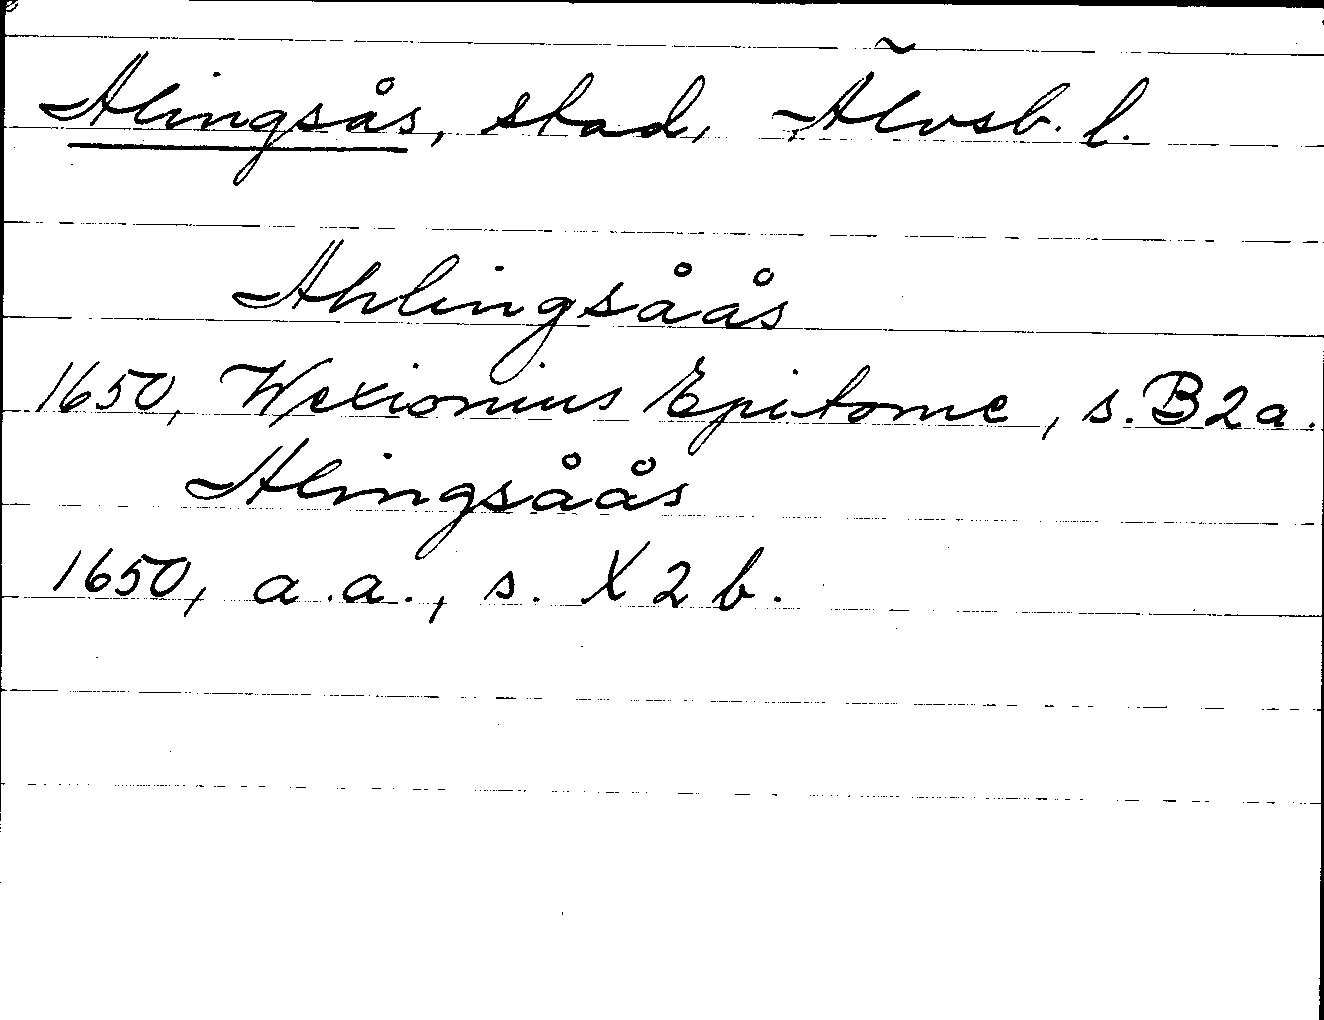 Alingsås, stad, Älvsb. l.
Ahlingsåås
1650, Wexionius Epitome, s. B2a.
Alingsåås
1650, a.a., s. X2b.